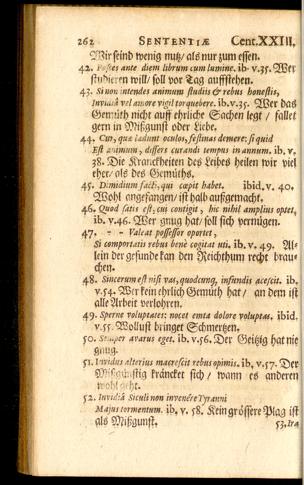 262 SENTENTIÆ Cent. XXIII.
Wir seind wenig nutz/ als nur zum essen.
42. Postes ante diem librum cum lumine. ib. v. 35. Wer
studieren will/ soll vor Tag auffstehen.
43. Si non intendes animum studiis & rebus honestis,
Invidiâ vel amore vigil torquebere. ib. v. 35. Wer das
Gemüth nicht auff ehrliche Sachen legt/ fallet
gern in Mißgunst oder Liebe.
44. Cur, quæ lædunt oculos, festinas demere: si quid
Est animum, differs curandi tempus in annum. ib. v.
38. Die Kranckheiten des Leibes heilen wir viel
eher/ als des Gemüths.
45. Dimidium facti, qui cœpit habet. ibid. v. 40.
Wohl angefangen/ ist halb außgemacht.
46. Quod satis est, cui contigit, hic nihil amplius optet,
ib. v. 46. Wer gnug hat/ soll sich vernügen.
47. - - Valeat possessor oportet,
Si comportatis rebus benè cogitat uti. ib. v. 49. Al-
lein der gesunde kan den Reichthum recht brau-
chen.
48. Sincerum est nisi vas, quodcunq, infundis acescit. ib.
v. 54. Wer kein ehrlich Gemüth hat/ an dem ist
alle Arbeit verlohren.
49. Sperne voluptates: nocet emta dolore voluptas. ibid.
v. 55. Wollust bringet Schmertzen.
50. Semper avarus eget. ib. v. 56. Der Geitzig hat nie
gnug.
51. Invidus alterius macrescit rebus opimis. ib. v. 57. Der
Mißgünstig kräncket sich/ wann es anderen
wohl geht.
52. Invidiâ Siculi non invenére Tyranni
Majus tormentum. ib. v. 58. Kein grössere Plag ist
als Mißgunst.
53. Ira